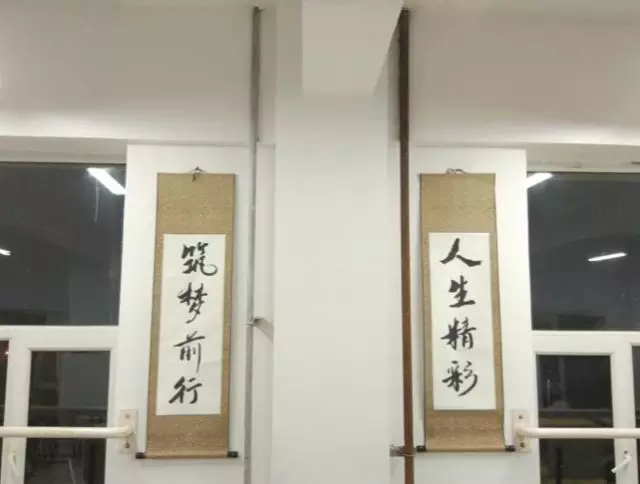 筑梦前行
人生精彩